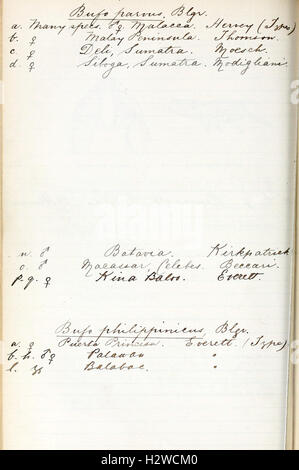 Bufo parvus, Blgr.
a. Many spec. Malacca. Hervey (Types)
b. ♀ Malay Peninsula. Thomson.
c. ♀ Deli, Sumatra. Moesch.
d. ♀ Siboga, Sumatra. Modigliani
n. ♂ Batavia. Kirkpatrick
o. ♂ Macassar, Celebes. Beccari.
p.q. ♀ Kina Baloo. Everett.
Bufo philippinicus, Blgr.
a. ♀ Puerto Princesa. Everett. (Type)
b. h. ♂♀ Palawan "
l. yg Balabac. "
alamy
Image ID: H2WCM0
www.alamy.com